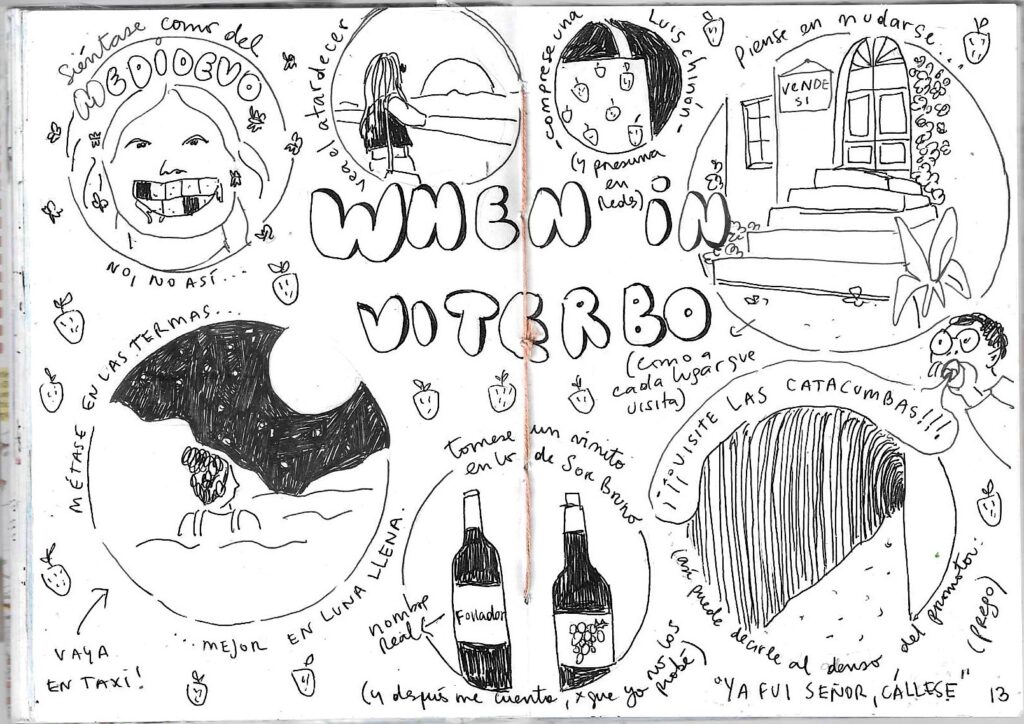 Siéntase como del
MEDIOEVO
NO, NO ASÍ...
vea el atardecer
-comprese una
Luis chinóin-
(y presuma
en
Redes)
Piense en mudarse...
VENDE
SI
WHEN IN
VITERBO
(como a
cada lugar que
visita)
MÉTASE EN LAS TERMAS...
...MEJOR EN LUNA LLENA.
VAYA
EN TAXI!
tomese un vinito
en lo de Sor Bruno
nombre
Real
Follador
(y despuis me cuenta, x que yo no los
probé)
¡¡¡VISITE LAS CATACUMBAS!!!
(así puede decirle al denso del promotor:
"YA FUI SEÑOR, CÁLLESE"
(prego)
13